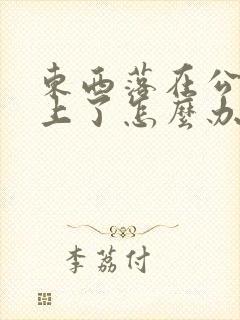 東西落在公
上了怎麼办
李荔付